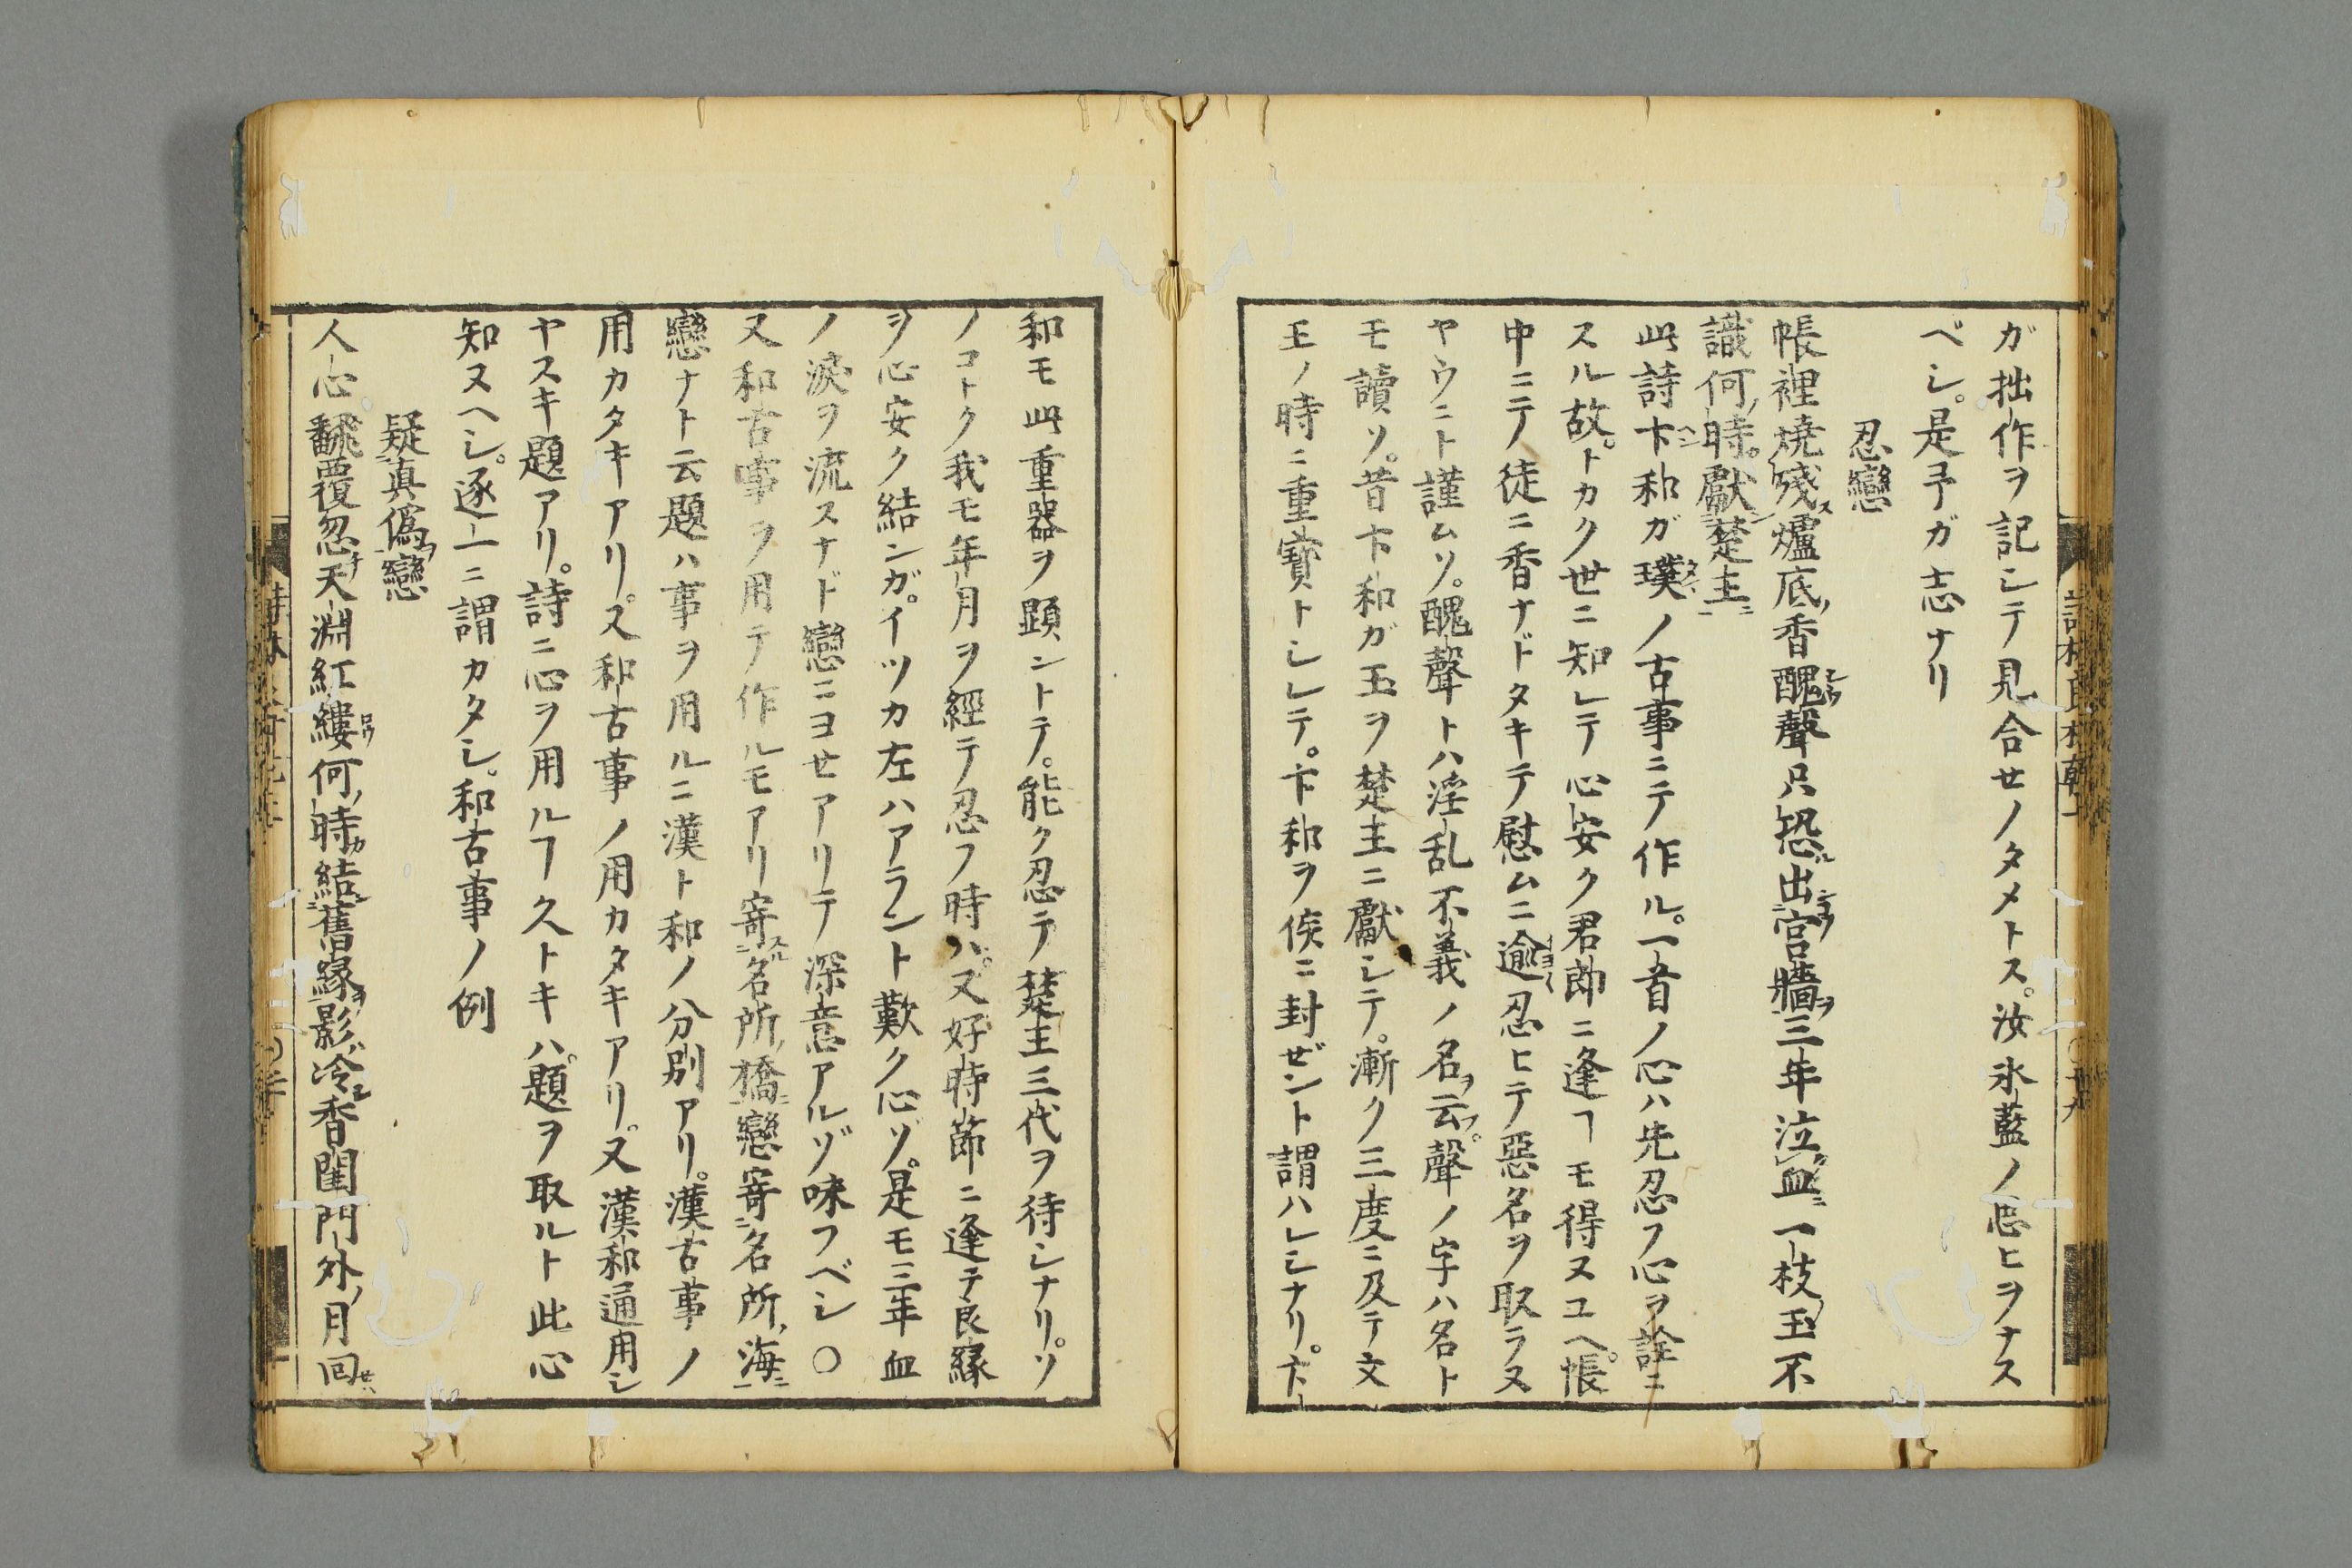 ガ拙作ヲ記シテ見合セノタメトス。汝氷藍ノ思ヒヲナス
ベシ。是予ガ志ナリ
忍戀
帳裡燒殘爐底香醜聲只恐出宮牆三年泣血一枝玉不
識何時獻楚主
此詩卞和ガ璞ノ古事ニテ作ル。一首ノ心ハ先忍フ心ヲ詮ニ
スル故。トカク世ニ知レテ心安ク君郎ニ逢ヿモ得ヌユヘ。帳
中ニテ徒ニ香ナドタキテ慰ムニ逾忍ヒテ惡名ヲ取ラヌ
ヤウニト謹ムソ。醜聲トハ淫乱不義ノ名ヲ云フ。聲ノ字ハ名ト
モ讀ソ。昔卞和ガ玉ヲ楚主ニ獻シテ。漸ク三度ニ及テ文
王ノ時ニ重寳トシレテ。卞和ヲ侯ニ封ゼント謂ハレシナリ。卞
和モ此重器ヲ顕ントテ。能ク忍テ楚主三代ヲ待シナリ。ソ
ノコトク我モ年月ヲ經テ忍フ時ハ。又好時節ニ逢テ良縁
ヲ心安ク結ンガ。イツカ左ハアラント歎ク心ゾ。是モ三年血
ノ淚ヲ流スナド戀ニヨセアリテ深意アルゾ味フベシ〇
又和古事ヲ用テ作ルモアリ寄名所橋戀寄名所海
戀ナト云題ハ事ヲ用ルニ漢ト和ノ分別アリ。漢古事ノ
用カタキアリ。又和古事ノ用カタキアリ。又漢和通用シ
ヤスキ題アリ。詩ニ心ヲ用ルヿ久トキハ。題ヲ取ルト此心
知ヌヘシ。逐一ニ謂カタシ。和古事ノ例
疑真僞戀
人心飜覆忽天淵紅縷何時結舊緣影冷香閨門外月回